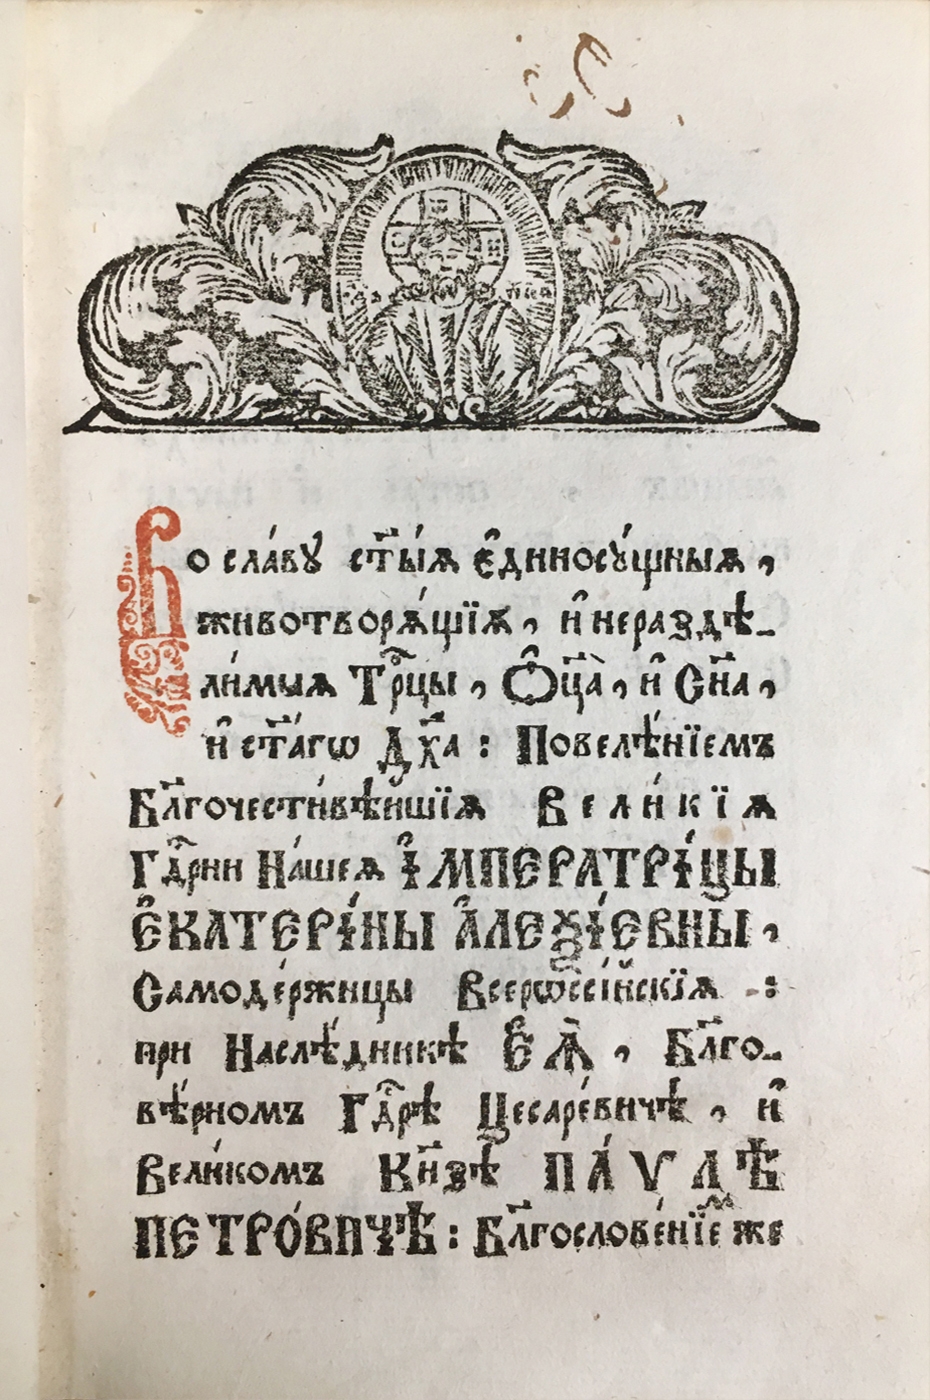 Во сла́вꙋ ст҃ы́ѧ є҆диносꙋ́щныѧ,
животворѧ́щїѧ, и҆ нераздѣ-
ли́мыѧ Трⷪ҇цы, Ѻ҆ц҃а̀, и҆ Сн҃а,
и҆ ст҃а́гѡ Дх҃а : Повелѣ́нїемъ
Бл҃гочести́вѣйшїѧ Вели́кїѧ
Гдⷭ҇рни На́шеѧ І҆МПЕРАТРІ́ЦЫ
Є҆КАТЕРІ́НЫ А҆ЛЕѮІ́ЕВНЫ,
Самоде́ржицы Всерѡссі́йскїѧ :
при Наслѣ́дникѣ Є҆Ѧ̀, Бл҃го-
вѣ́рномъ Гдⷭ҇рѣ Цесаре́вичѣ, и҆
Вели́комъ Кн҃зѣ ПА́ѴЛѢ
ПЕТРО́ВИЧѢ : Бл҃гослове́нїеⷨ же